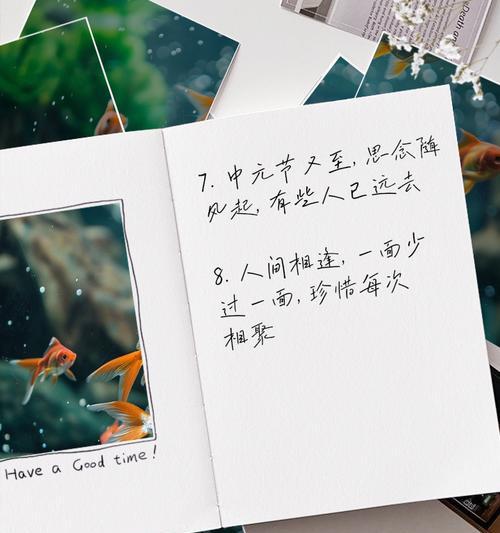 7. 中元节又至，思念随
风起，有些人已远去
8. 人间相逢，一面少
过一面，珍惜每次
相聚
Have a Good time!
Death an